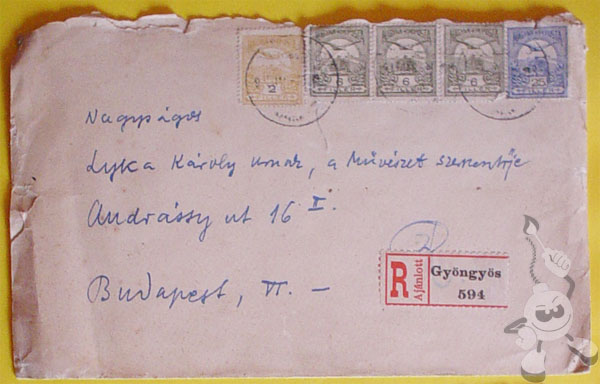 2 6 6 6 25
Nagyságos
Lyka Károly urnak, a Művészet szerkesztője
Andrássy ut 16 I.
2
R Ajánlott Gyöngyös
594
Budapest, VI. –